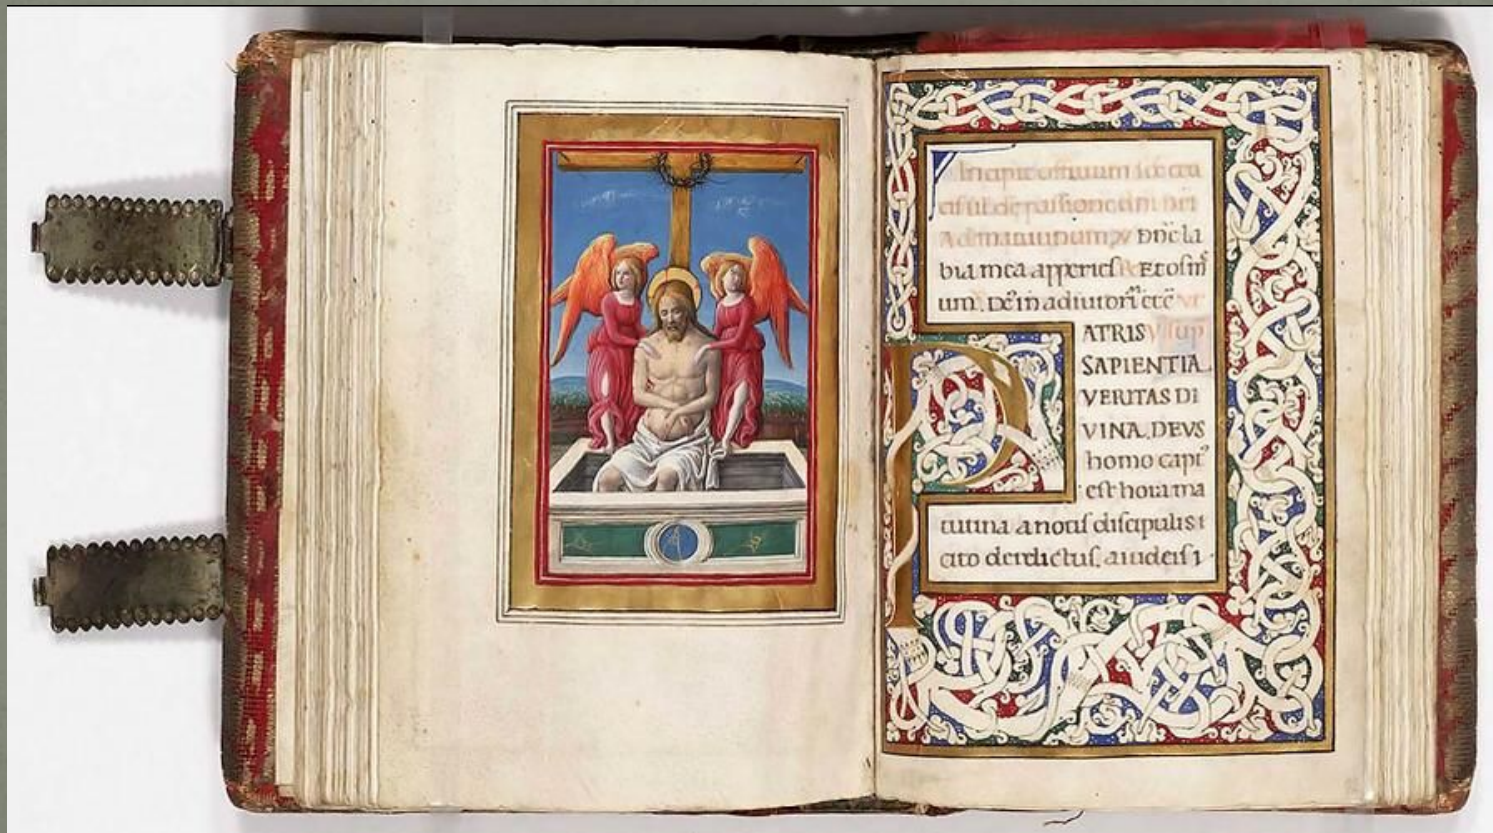 Incipit offitium sc̄e cru
cis siue de passione dm̄ nr̄i
Ad matutinum. Dn̄e la
bia mea apperies. Et os m̄
um. De in adiutori etc̄
PATRIS
SAPIENTIA
VERITAS DI
VINA. DEVS
homo capt
est hora ma
tutina a notis discipulis
cito derelictus, a iudeis